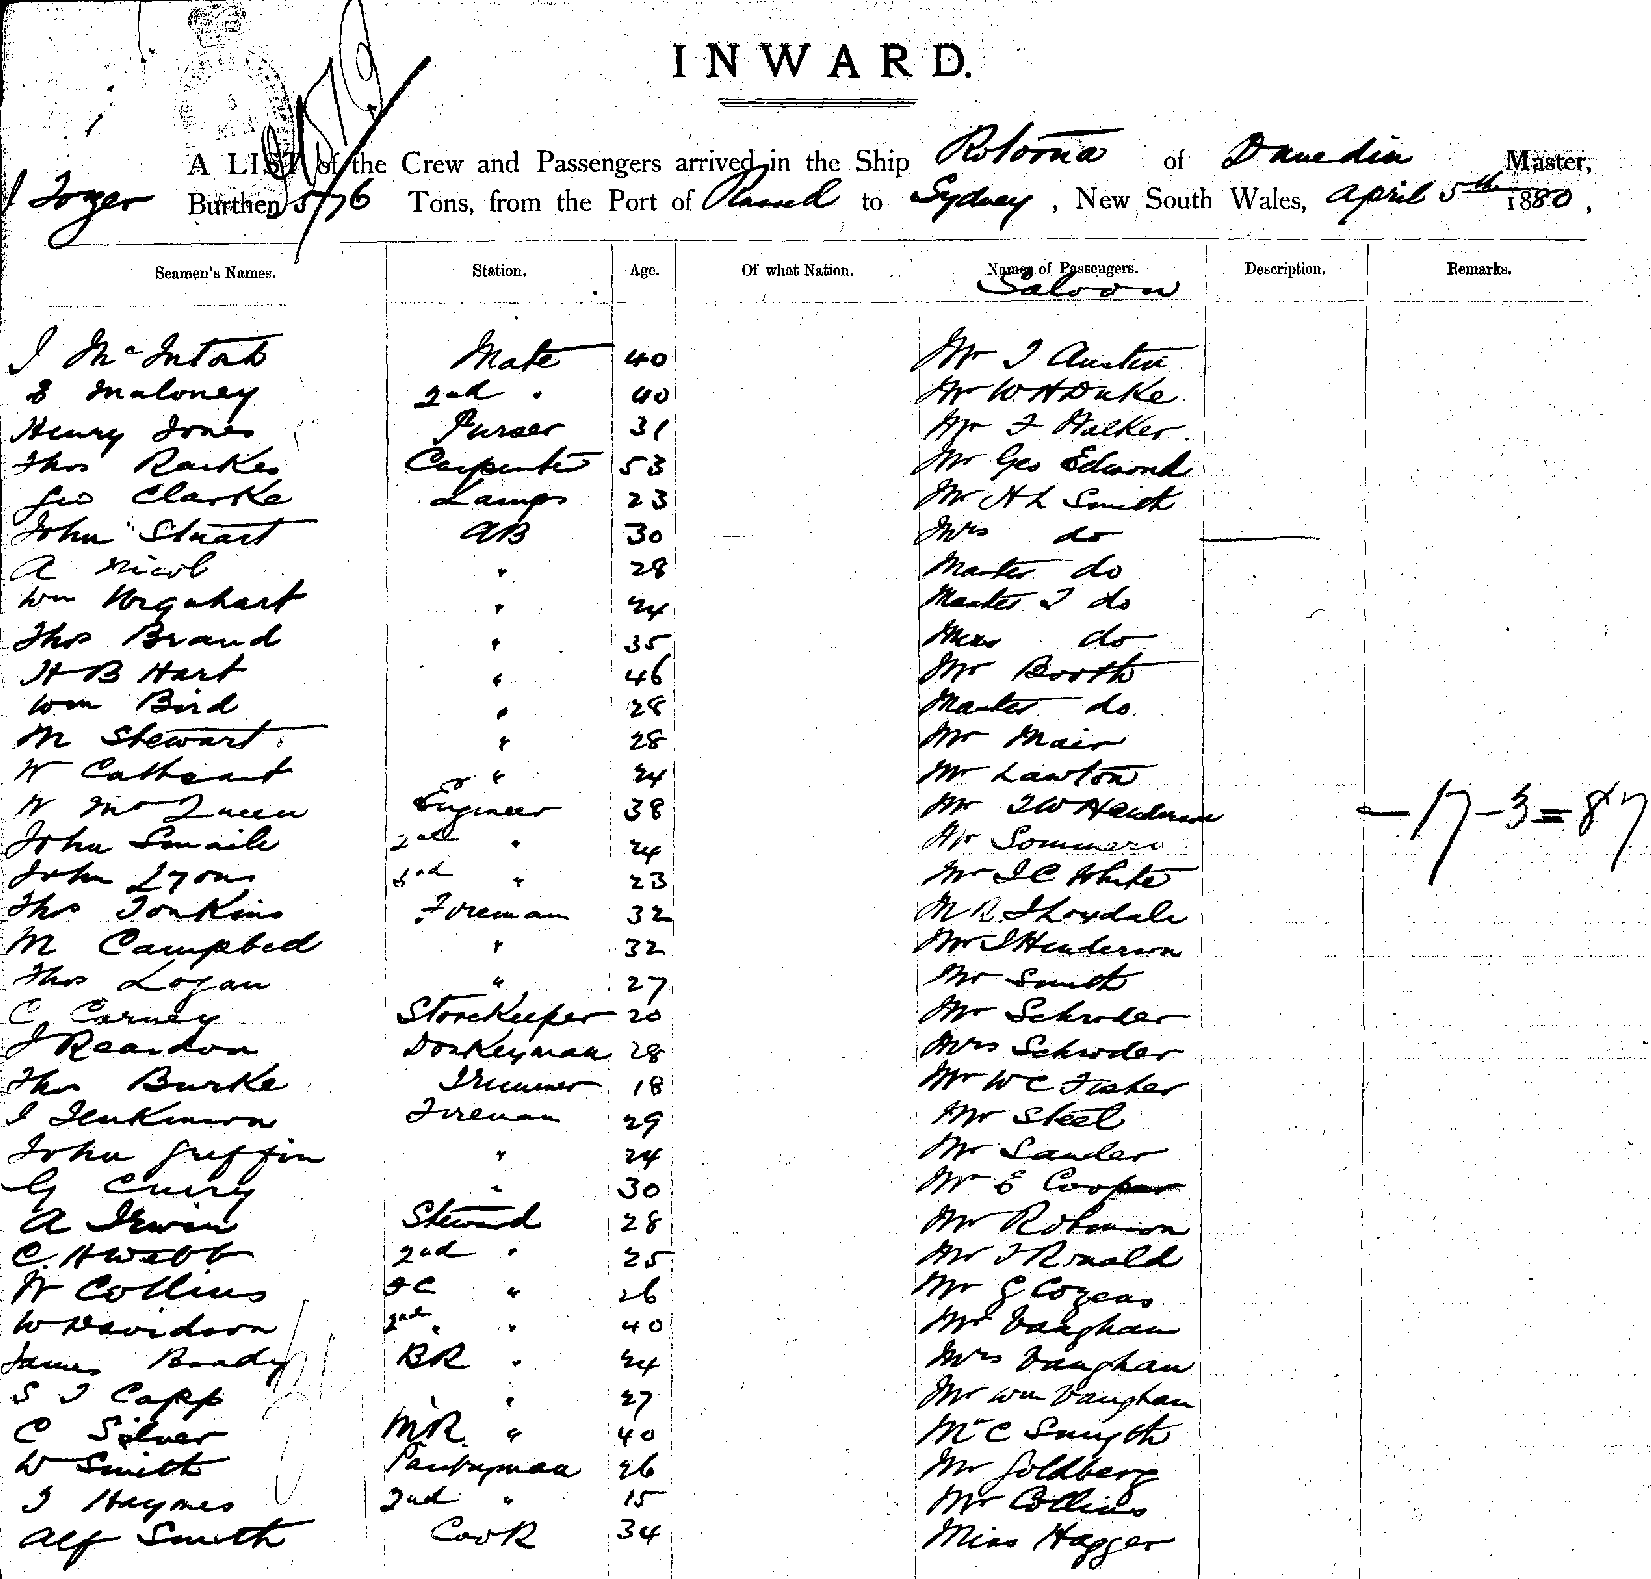 INWARD.
A LIST of the Crew and Passengers arrived in the Ship Rotoma of Dunedin Master,
Burthen 576 Tons, from the Port of to Sydney, New South Wales, April 5th 1880,
Seamen's Names. Station. Age. Of what Nation. Names of Passengers. Description. Remarks.
Saloon
J McIntosh Mate 40 Mr J Austin
Maloney 2nd " 40 Mr W H Duke
Henry Jones Purser 31 Mr F Walker
Thos Raikes Carpenter 53 Mr Geo Edmond
Geo Clarke Lamps 23 Mr H L Smith
John Stuart AB 30 Mrs do
A Nicol " 28 Master do
Wm Urquhart " 24 Master J do
Thos Brand " 35 Miss do
H B Hart " 46 Mr Booth
Wm Bird " 28 Master do
M Stewart " 28 Mr Mair
W Cathcart " 24 Mr Lawton
W McQueen Engineer 38 Mr Henderson
John Smaile 2nd " 24 Mr Sommers
John Lyons 3rd " 23 Mr J C White
Thos Tonkins Foreman 32 Mr
M Campbell " 32 Mr J Henderson
Thos Logan " 27 Mr Smith
C Carney Storekeeper 20 Mr Schroder
J Reardon Donkeyman 28 Mrs Schroder
Thos Burke Trimmer 18 Mr W C Fisher
J Jenkinson Fireman 29 Mr Steel
John Griffin " 24 Mr Lauder
G Curry " 30 Mr E Cooper
A Irwin Steward 28 Mr Robinson
C. H Webb 2nd " 25 Mr J Ronald
W Collins FC " 26 Mr G Cozens
W Davidson 2nd " " 40 Mr Vaughan
James Brady BR " 24 Mrs Vaughan
S J Capp " 27 Mr Wm Vaughan
C Silver MR. " 40 Mr C Smyth
W Smith Pantryman 26 Mr Goldberg
J Haymes 2nd " 15 Mr Collins
Alf Smith Cook 34 Miss Hagger
- 17 - 3 = 87